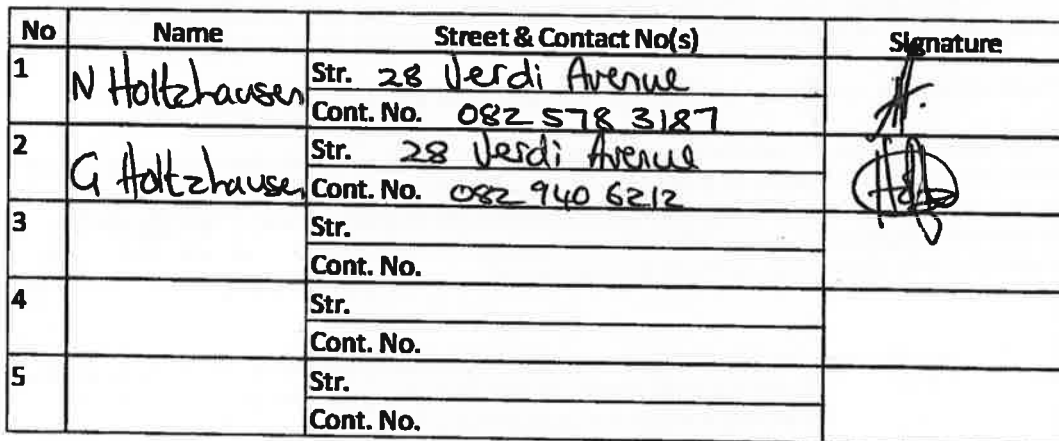 No Name Street & Contact No(s) Signature
1 N Holtzhausen Str. 28 Verdi Avenue
Cont. No. 082 578 3187
2 G Holtzhausen Str. 28 Verdi Avenue
Cont. No. 082 940 6212
3 Str.
Cont. No.
4 Str.
Cont. No.
5 Str.
Cont. No.